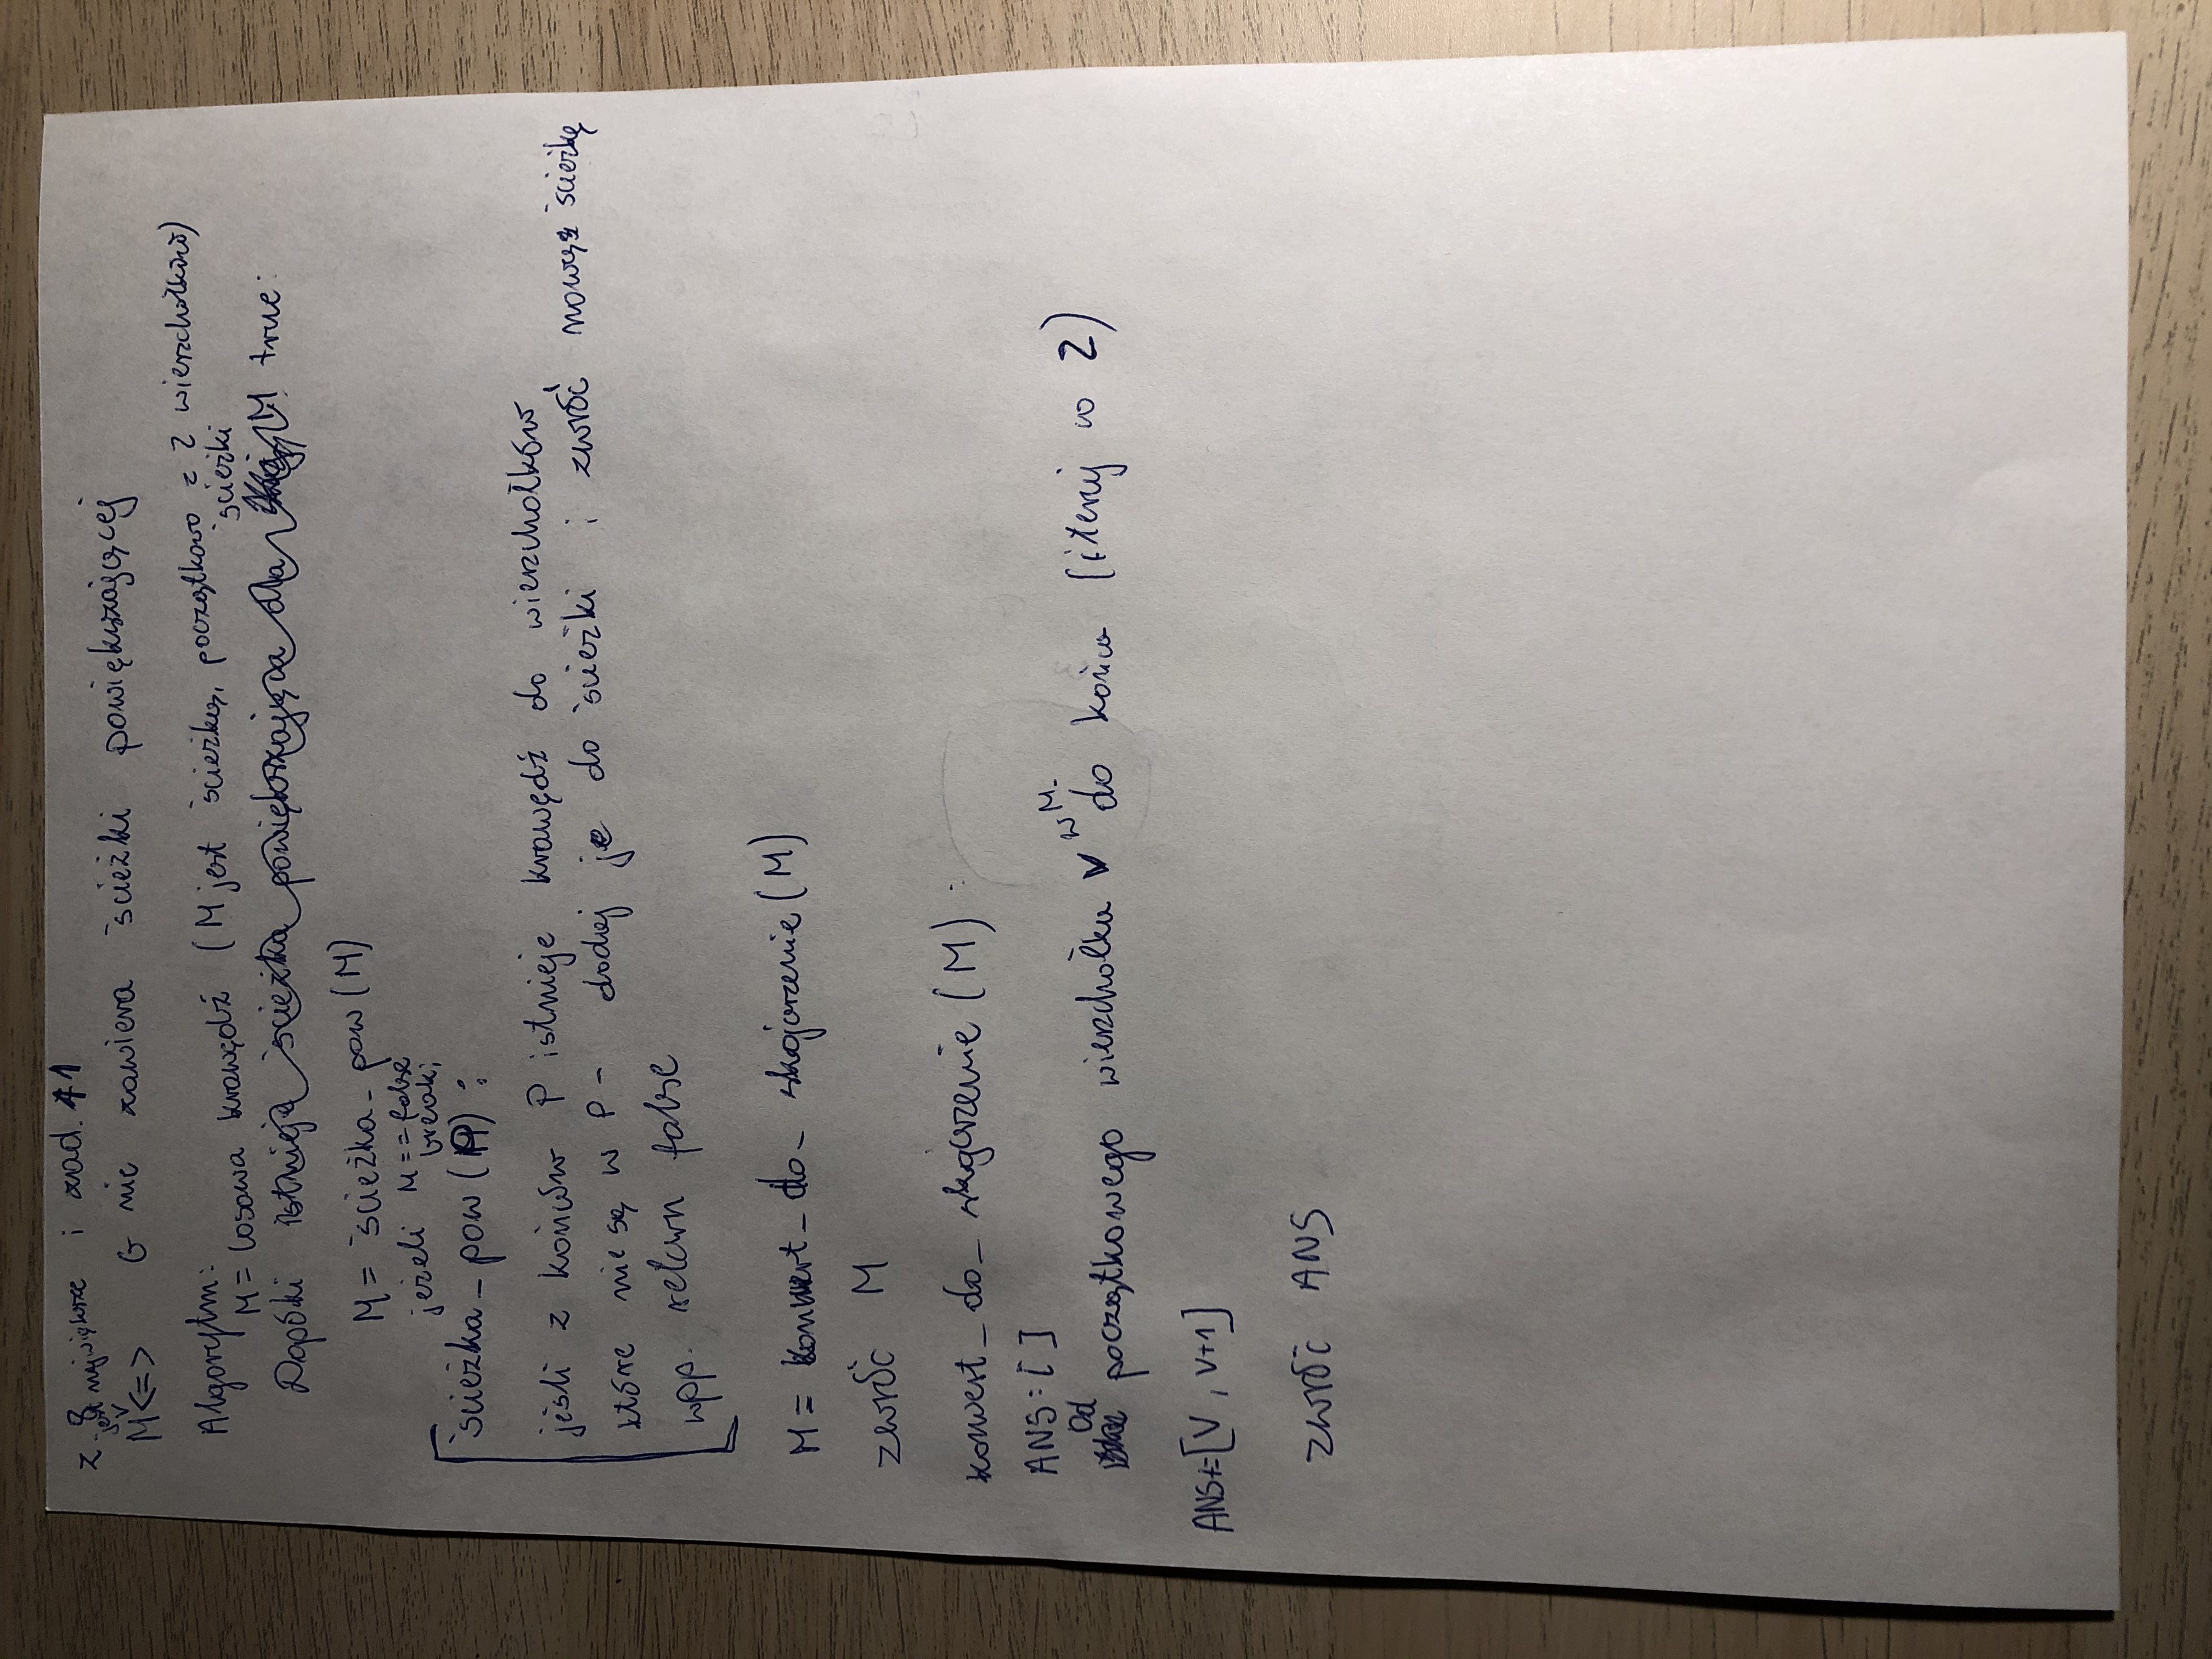 z 8 i zad. 41
jest największe
M <=> G nie zawiera ścieżki powiększającej
Algorytm:
M = losowa krawędź (M jest ścieżką, początkowo z 2 wierzchołków)
ścieżki
Dopóki istnieje ścieżka powiększająca dla M true:
M = ścieżka_pow(M)
jeżeli M == false
break;
ścieżka_pow(P):
jeśli z końców P istnieje krawędź do wierzchołków,
które nie są w P - dodaj je do ścieżki i zwróć nową ścieżkę
wpp. return false
M = konwert_do_skojarzenie(M)
zwróć M
konwert_do_skojarzenie(M):
ANS=[]
Od początkowego wierzchołka v w M do końca (iteruj co 2)
ANS+=[V, V+1]
zwróć ANS